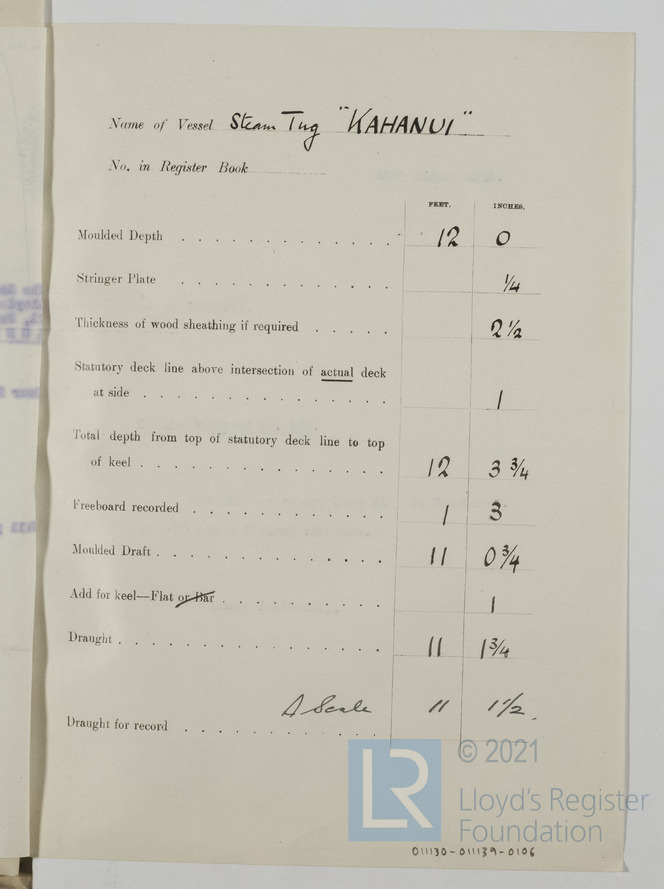 Name of Vessel Steam Tug "KAHANUI"
No. in Register Book
FEET. INCHES.
Moulded Depth . . . . . . . . . . . . 12 0
Stringer Plate . . . . . . . . . . . . 1/4
Thickness of wood sheathing if required . . . . . 2 1/2
Statutory deck line above intersection of actual deck
at side . . . . . . . . . . . . . . 1
Total depth from top of statutory deck line to top
of keel . . . . . . . . . . . . . . 12 3 3/4
Freeboard recorded . . . . . . . . . . . 1 3
Moulded Draft . . . . . . . . . . . . . 11 0 3/4
Add for keel—Flat or Bar . . . . . . . . . 1
Draught . . . . . . . . . . . . . . . 11 1 3/4
A Scale 11 1 1/2.
Draught for record . . . . . . . . . . .
LR © 2021
Lloyd's Register
Foundation
011130-011139-0106